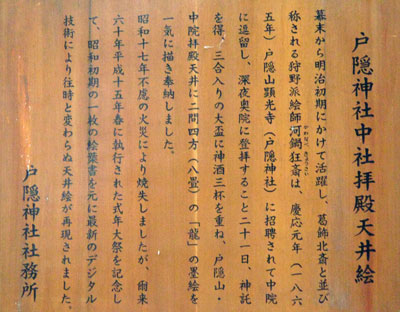 戸隠神社中社拝殿天井絵
幕末から明治初期にかけて活躍し、葛飾北斎と並び
称される狩野派絵師河鍋狂斎は、慶応元年(一八六
五年)戸隠山顕光寺(戸隠神社)に招聘されて中院
に逗留し、深夜奥院に登拝すること二十一日、神託
を得、三合入りの大盃に神酒三杯を重ね、戸隠山・
中院拝殿天井に二間四方(八畳)の「龍」の墨絵を
一気に描き奉納しました。
昭和十七年不慮の火災により焼失しましたが、爾来
六十年平成十五年春に執行された式年大祭を記念し
て、昭和初期の一枚の絵葉書を元に最新のデジタル
技術により往時と変わらぬ天井絵が再現されました。
戸隠神社社務所